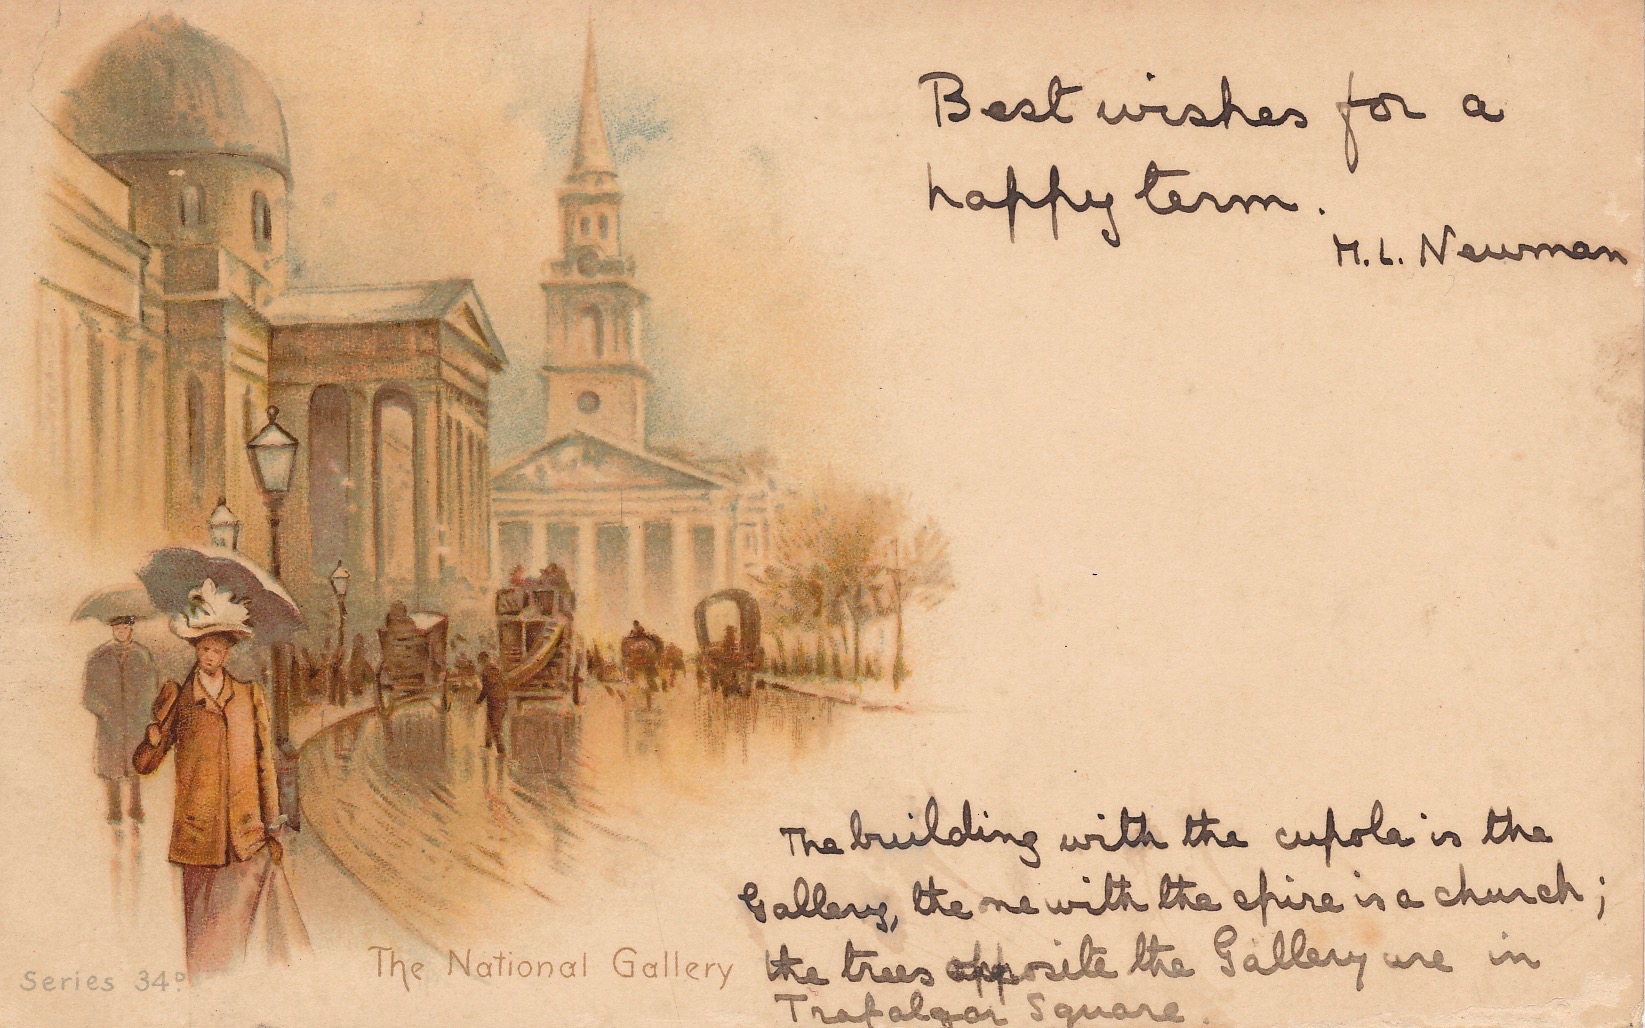 Best wishes for a
happy term.
M. L. Newman
The building with the cupola is the
Gallery, the one with the spire is a church;
the trees opposite the Gallery are in
Trafalgar Square.
The National Gallery
Series 34º